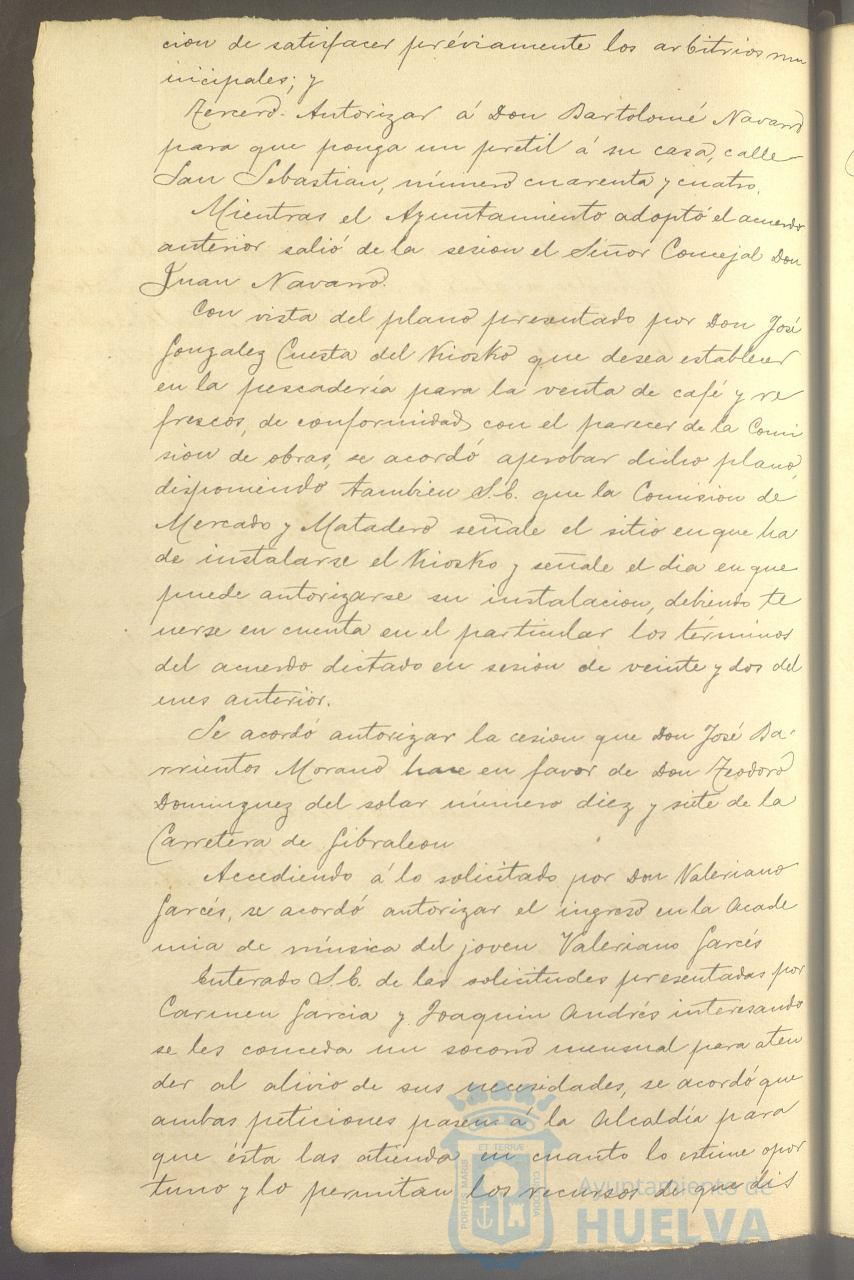 cion de satisfacer préviamente los arbitrios mu
nicipales; y
Tercero. Autorizar á Don Bartolomé Navarro
para que ponga un pretil á su casa, calle
San Sebastian, número cuarenta y cuatro.
Mientras el Ayuntamiento adoptó el acuerdo
anterior salió de la sesion el Señor Concejal Don
Juan Navarro.
Con vista del plano presentado por Don José
Gonzalez Cuesta del Kiosko que desea establecer
en la pescadería para la venta de café y re
frescos, de conformidad con el parecer de la Comi
sion de obras, se acordó aprobar dicho plano,
disponiendo tambien S.E. que la Comision de
Mercado y Matadero señale el sitio en que ha
de instalarse el Kiosko y señale el dia en que
puede autorizarse su instalacion, debiendo te
nerse en cuenta en el particular los términos
del acuerdo dictado en sesion de veinte y dos del
mes anterior.
Se acordó autorizar la cesion que Don José Ba-
rrientos Morano hace en favor de Don Teodoro
Dominguez del solar número diez y siete de la
Carretera de Gibraleon
Accediendo á lo solicitado por Don Valeriano
Garcés, se acordó autorizar el ingreso en la Acade
mia de música del joven Valeriano Garcés
Enterado S.E. de las solicitudes presentadas por
Carmen Garcia y Joaquin Andrés interesando
se les conceda un socorro mensual para aten
der al alivio de sus necesidades, se acordó que
ambas peticiones pasen á la Alcaldía para
que ésta las atienda en cuanto lo estime opor
tuno y lo permitan los recursos de que dis
PORTUS MARIS ET TERRAE CUSTODIA
Ayuntamiento de
HUELVA